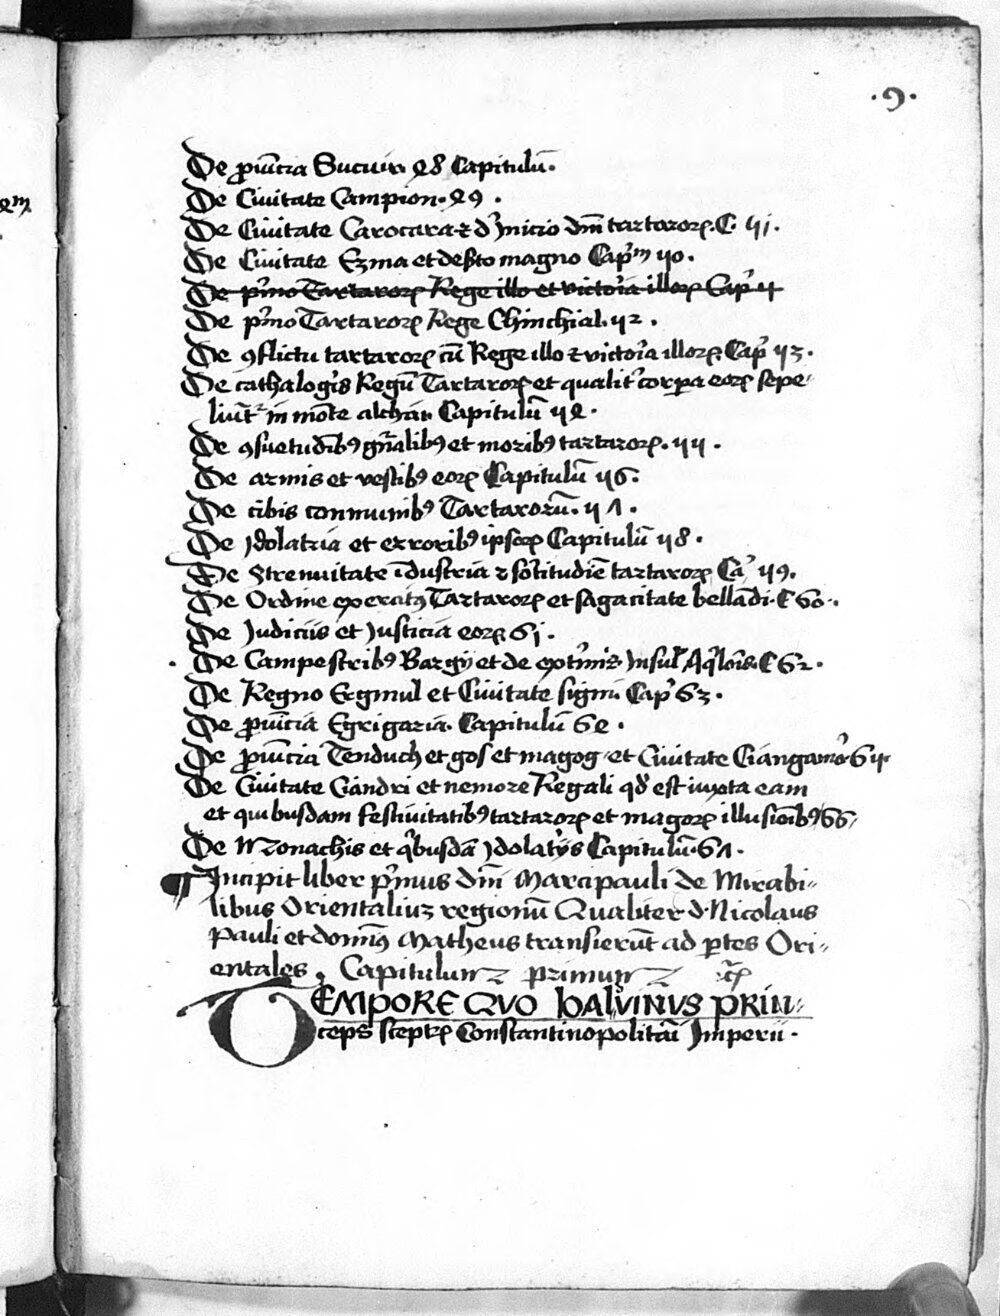 ·9·
De ꝓuincia Succuir. 48 Capitulū.
De Ciuitate Campion. 49.
De Ciuitate Carocara ⁊ d' Inicio dm̄ tartaroꝝ. C. 51.
De Ciuitate Ezma et deserto magno Cap'm 50.
De p'mo Tartaroꝝ Rege illo et victoria illoꝝ Cap' 5
De p'mo Tartaroꝝ Rege Chinchial. 52.
De ꝯflictu tartaroꝝ cū Rege illo ⁊ victoria illoꝝ. Cap' 53.
De cathalogis Regū Tartaroꝝ et qualit' corpa eoꝝ sepe-
liūt' in mōte alchai Capitulū 54.
De ꝯsuetudībꝰ gn̄alibꝰ et moribꝰ tartaroꝝ. 55.
De armis et vestibꝰ eoꝝ Capitulū 56.
De cibis conmunibꝰ Tartarorū. 57.
De Idolatria et erroribꝰ ipsoꝝ Capitulū 58.
De Strenuitate īdustria ⁊ fortitudīe tartaroꝝ Ca' 59.
De Ordine exercitꝰ Tartaroꝝ et sagacitate bellādi. C 60.
De Judiciis et Justicia eoꝝ 61.
De Campestribꝰ Bargy et de extimis Insul' Aq'lois. C 62.
De Regno Ergmul et Ciuitate signi Cap' 63.
De ꝓuincia Egrigaria. Capitulū 64.
De ꝓuincia Tenduch et gos et magog et Ciuitate Ciangamor' 65
De Ciuitate Ciandri et nemore Regali qd' est iuxta eam
et quibusdam festiuitatibꝰ tartaroꝝ et magoꝝ illusioībꝰ 66
De Monachis et q'busdā Idolatrys Capitulū. 67.
¶ Incipit liber p'mus dm̄ Marcipauli de Mirabi-
libus Orientaliuꝫ regionū Qualiter d. Nicolaus
Pauli et domīꝰ Matheus transierūt ad ꝑtes Ori-
entales. Capitulum primum
TEMPORE QVO balduINVS PRIN-
ceps sceptꝝ Constantinopolitāi Imperii.